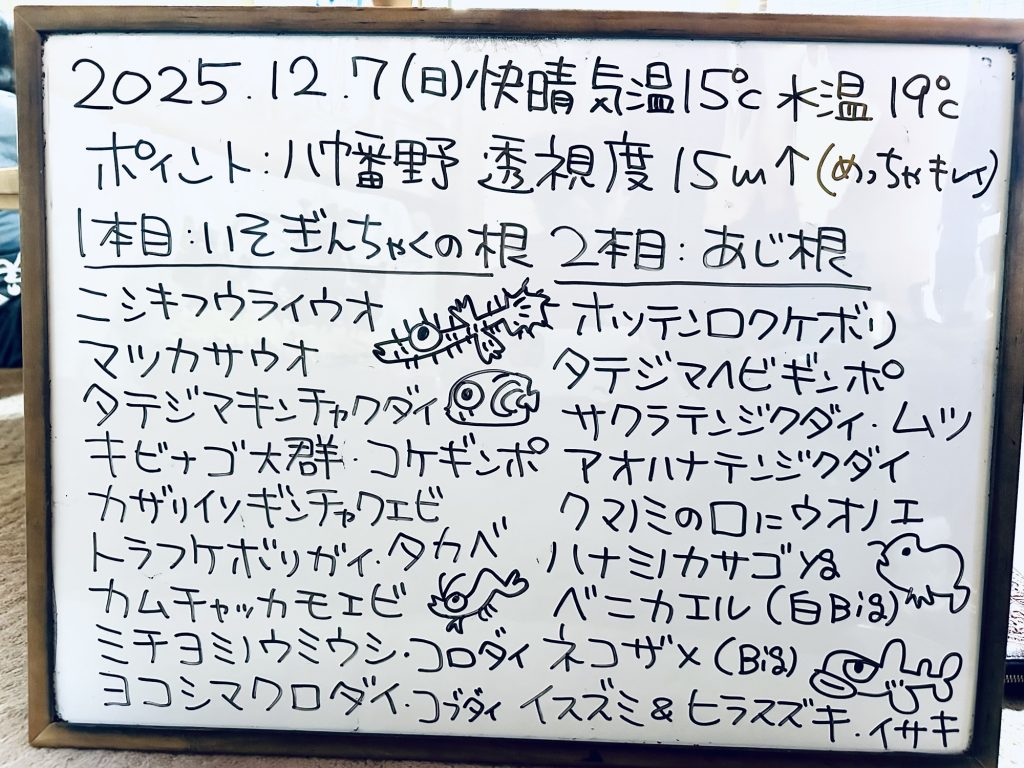 2025.12.7(日)快晴 気温15℃ 水温19℃
ポイント:八幡野 透視度15m↑(めっちゃキレイ)
1本目:いそぎんちゃくの根
ニシキフウライウオ
マツカサウオ
タテジマキンチャクダイ
キビナゴ大群・コケギンポ
カザリイソギンチャクエビ
トラフケボリガイ・タカベ
カムチャッカモエビ
ミチヨミノウミウシ・コロダイ
ヨコシマクロダイ・コブダイ
2本目:あじ根
ホツテンロクケボリ
タテジマヘビギンポ
サクラテンジクダイ・ムツ
アオハナテンジクダイ
クマノミの口にウオノエ
ハナミノカサゴyg
ベニカエル(白Big)
ネコザメ(Big)
イスズミ&ヒラスズキ・イサキ